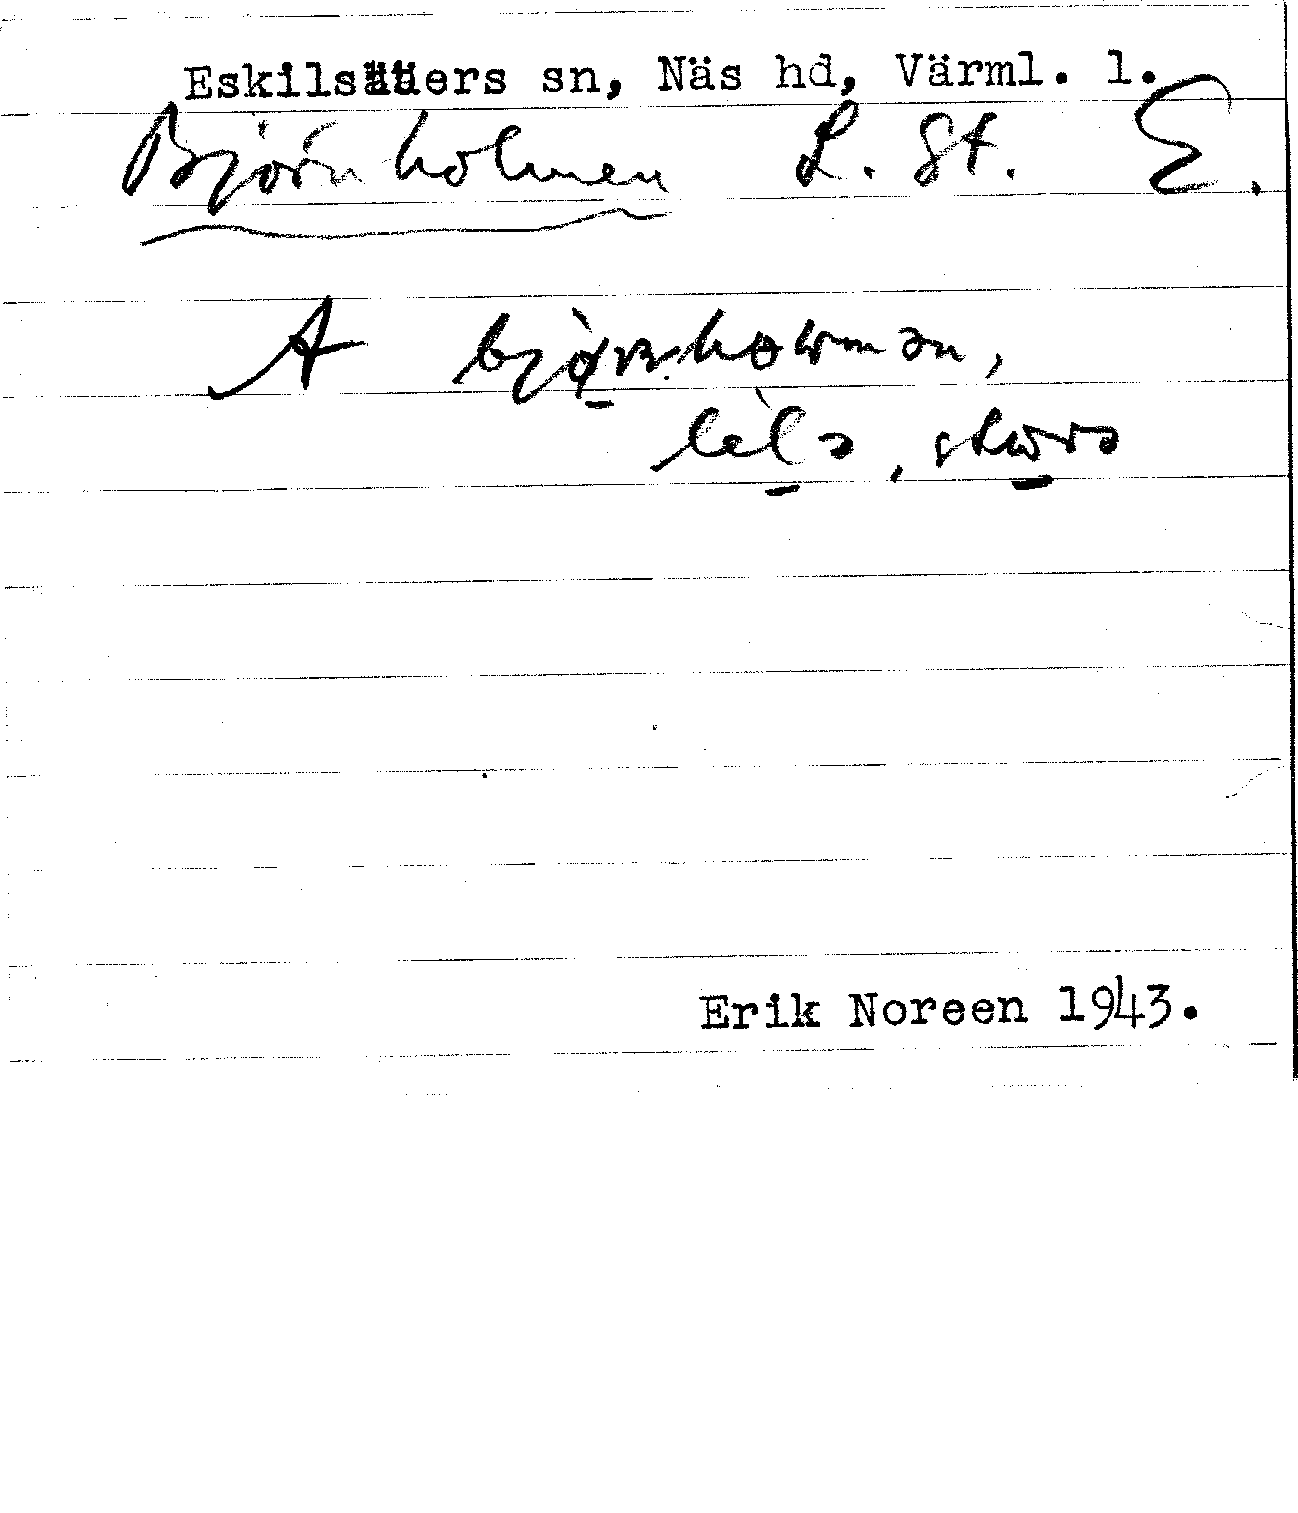 Eskilsäters sn, Näs hd, Värml. l.
Björnholmen L. St. E.
A bjørnhoɯmən,
lila, stora
Erik Noreen 1943.